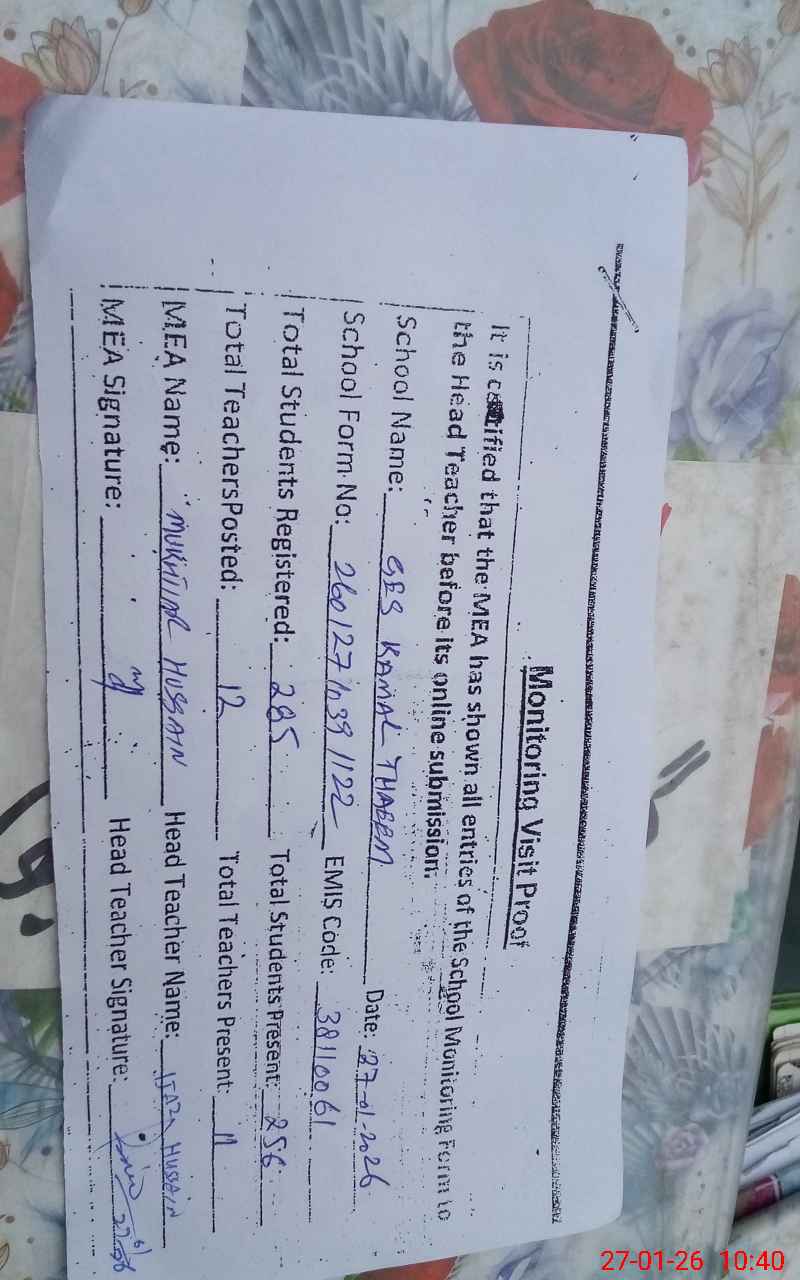 Monitoring Visit Proof
It is certified that the MEA has shown all entries of the School Monitoring Form to
the Head Teacher before its online submission.
School Name: GES KAMAL THAEEM Date: 27-01-2026
School Form No: 260127 1039 1122 EMIS Code: 38110061
Total Students Registered: 285 Total Students Present: 256
Total Teachers Posted: 12 Total Teachers Present: 11
MEA Name: MUKHTIAR HUSSAIN Head Teacher Name: IJAZ HUSSAIN
MEA Signature: Head Teacher Signature:
27-01-26 10:40